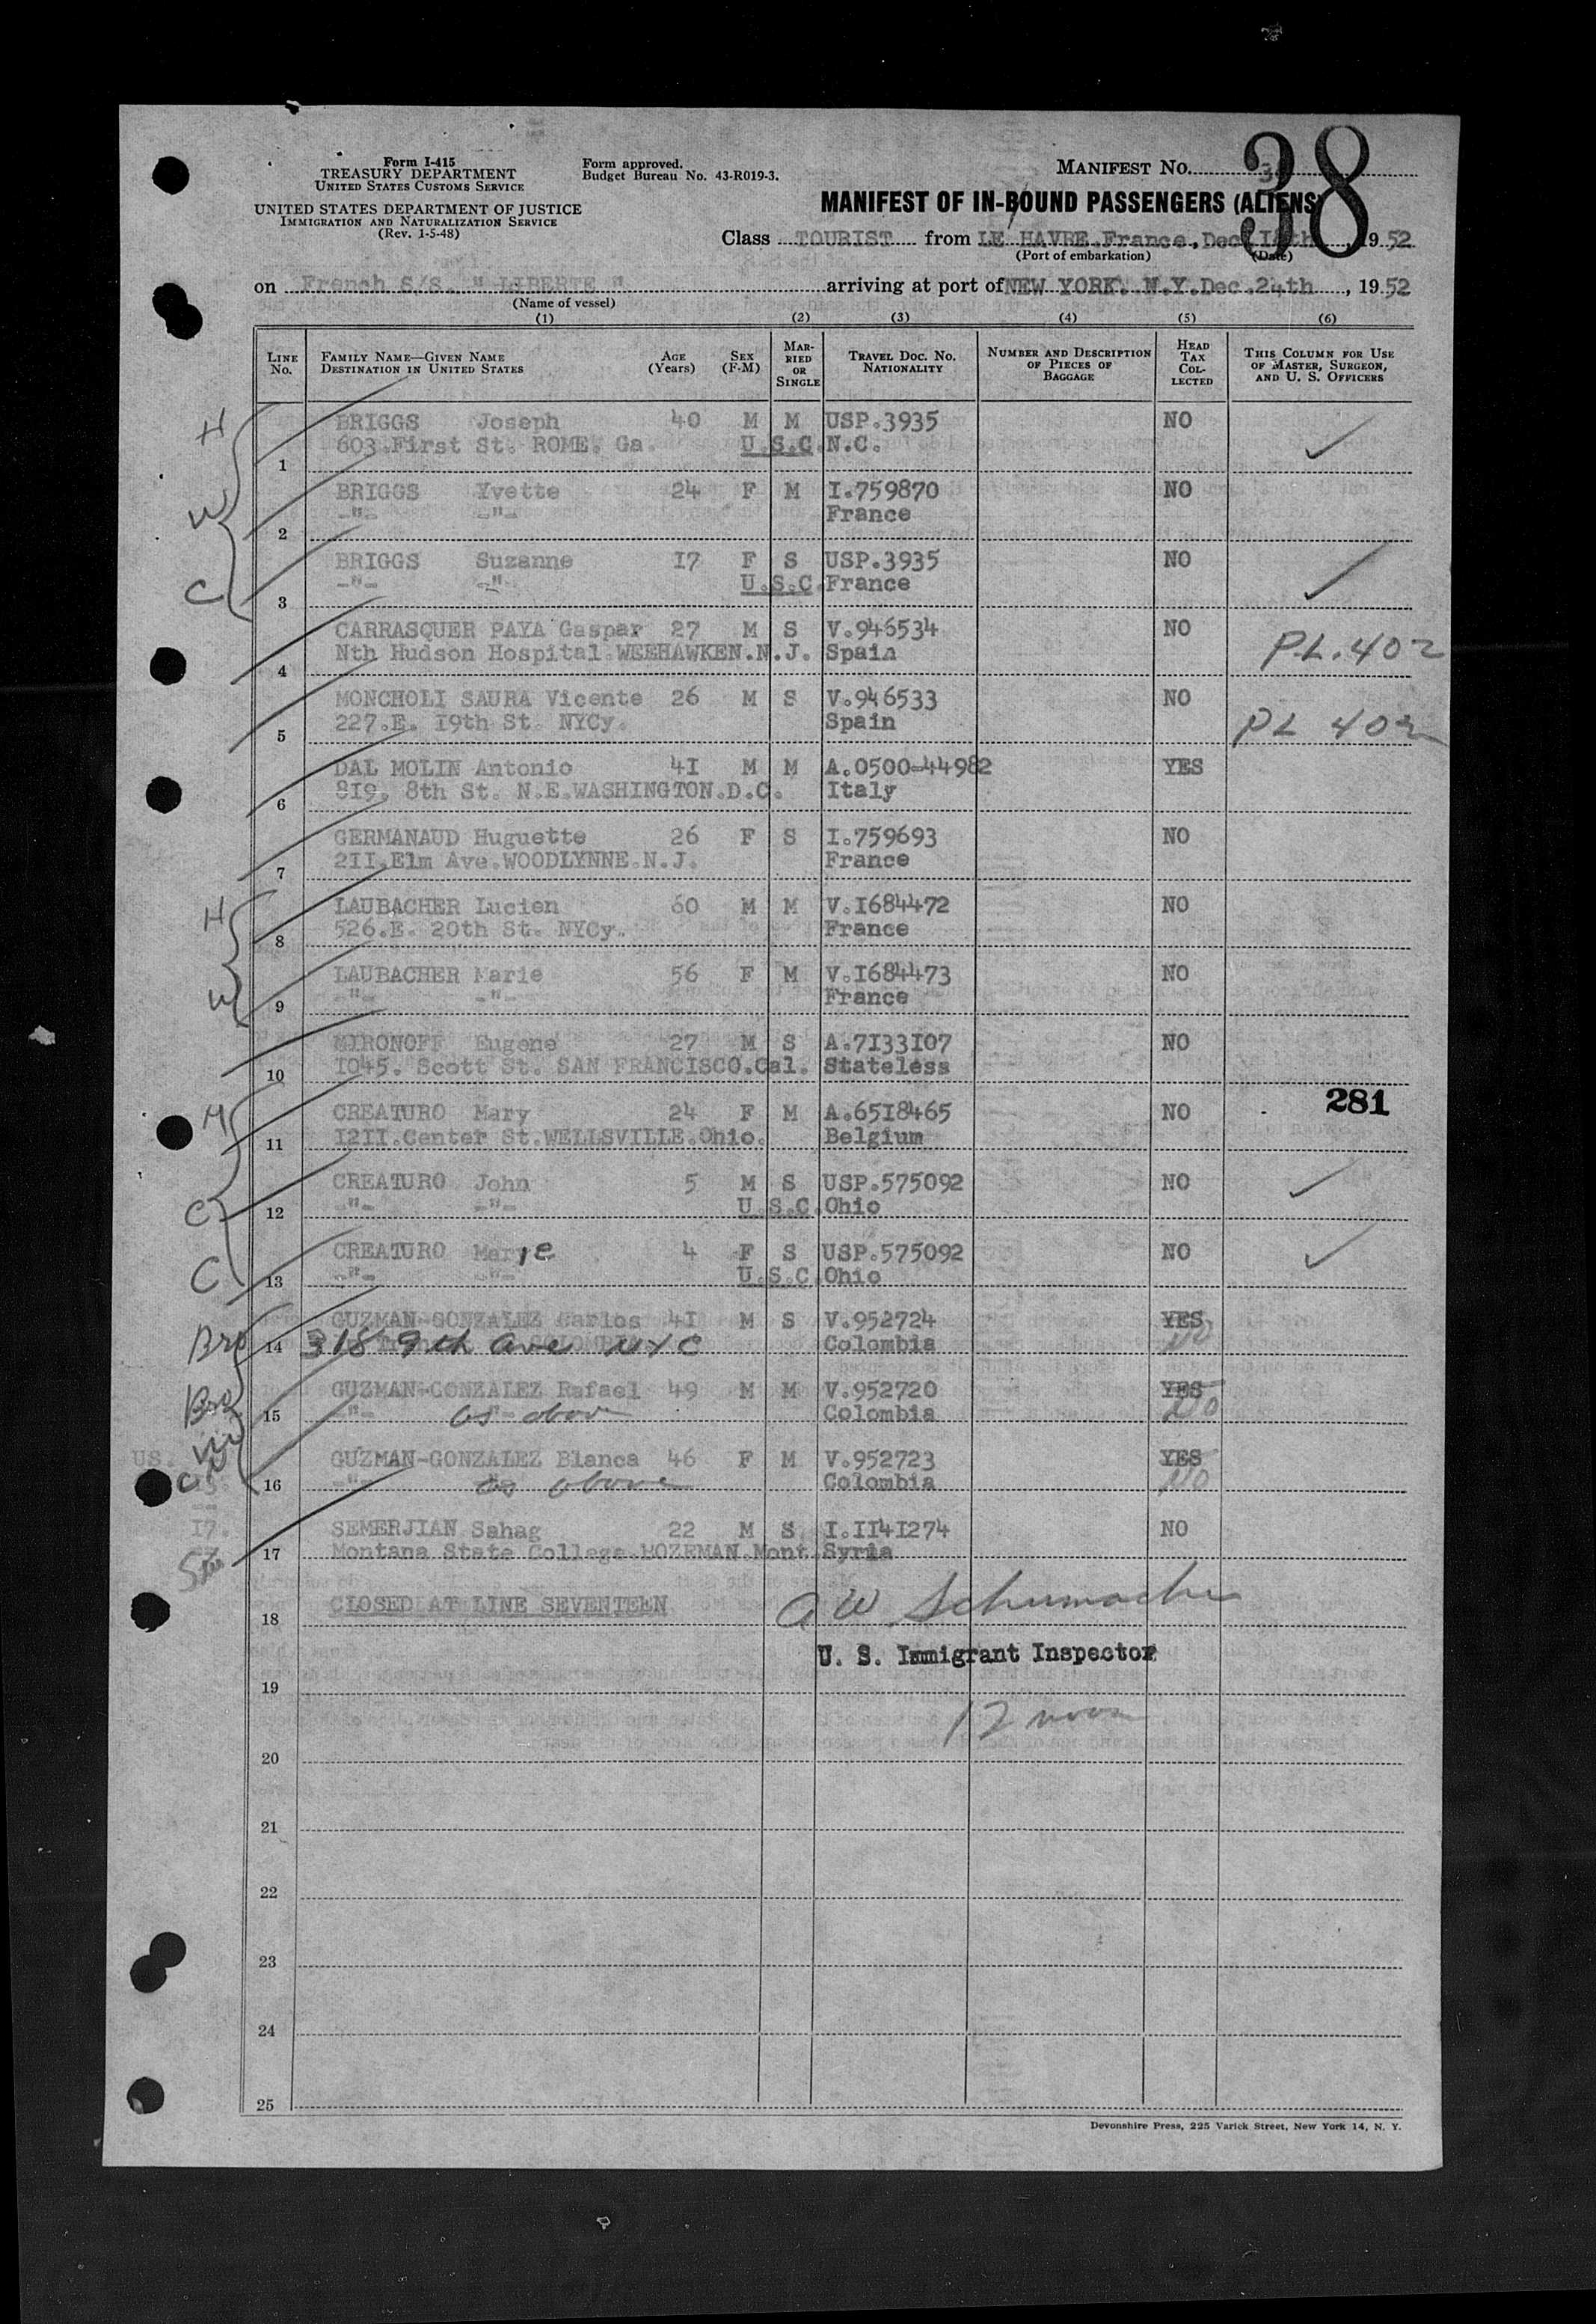 38
Form I-415
TREASURY DEPARTMENT
UNITED STATES CUSTOMS SERVICE
UNITED STATES DEPARTMENT OF JUSTICE
IMMIGRATION AND NATURALIZATION SERVICE
(Rev. 1-5-48)
Form approved.
Budget Bureau No. 43-R019-3.
MANIFEST No.
MANIFEST OF IN-BOUND PASSENGERS (ALIENS)
Class TOURIST from LE HAVRE.France, Dec. , 1952
(Port of embarkation) (Date)
on French S/S. " LIBERTE " arriving at port of NEW YORK. N.Y.Dec.24th , 1952
(Name of vessel)
(1) (2) (3) (4) (5) (6)
LINE No. FAMILY NAME—GIVEN NAME DESTINATION IN UNITED STATES AGE (Years) SEX (F-M) MARRIED OR SINGLE TRAVEL DOC. NO. NATIONALITY NUMBER AND DESCRIPTION OF PIECES OF BAGGAGE HEAD TAX COLLECTED THIS COLUMN FOR USE OF MASTER, SURGEON, AND U. S. OFFICERS
H BRIGGS Joseph 40 M M USP.3935 NO
1 603.First St. ROME. Ga. U.S.C. N.C.
W BRIGGS Yvette 24 F M I.759870 NO
2 -"- -"- France
C BRIGGS Suzanne 17 F S USP.3935 NO
3 -"- -"- U.S.C. France
CARRASQUER PAYA Gaspar 27 M S V.946534 NO PL.402
4 Nth Hudson Hospital.WEEHAWKEN.N.J. Spain
MONCHOLI SAURA Vicente 26 M S V.946533 NO PL 402
5 227.E. 19th St. NYCy. Spain
DAL MOLIN Antonio 4I M M A.0500-44982 YES
6 819. 8th St. N.E.WASHINGTON.D.C. Italy
GERMANAUD Huguette 26 F S I.759693 NO
7 2II.Elm Ave.WOODLYNNE.N.J. France
H LAUBACHER Lucien 60 M M V.I684472 NO
8 526.E. 20th St. NYCy. France
W LAUBACHER Marie 56 F M V.I684473 NO
9 -"- -"- France
MIRONOFF Eugene 27 M S A.7I33I07 NO
10 I045. Scott St. SAN FRANCISCO.Cal. Stateless
281
M CREATURO Mary 24 F M A.65I8465 NO
11 I2II.Center St.WELLSVILLE.Ohio. Belgium
C CREATURO John 5 M S USP.575092 NO
12 -"- -"- U.S.C. Ohio
C CREATURO Marie 4 F S USP.575092 NO
13 -"- -"- U.S.C. Ohio
Bro GUZMAN-GONZALEZ Carlos 4I M S V.952724 YES
14 318 9th ave NYC Colombia NO
Bro GUZMAN-GONZALEZ Rafael 49 M M V.952720 YES
15 -"- as above Colombia NO
GUZMAN-GONZALEZ Blanca 46 F M V.952723 YES
16 -"- as above Colombia NO
SEMERJIAN Sahag 22 M S I.II4I274 NO
17 Montana State College.BOZEMAN.Mont. Syria
18 CLOSED AT LINE SEVENTEEN A W Schumacher
U. S. Immigrant Inspector
19
12 noon
20
21
22
23
24
25
Devonshire Press, 225 Varick Street, New York 14, N. Y.